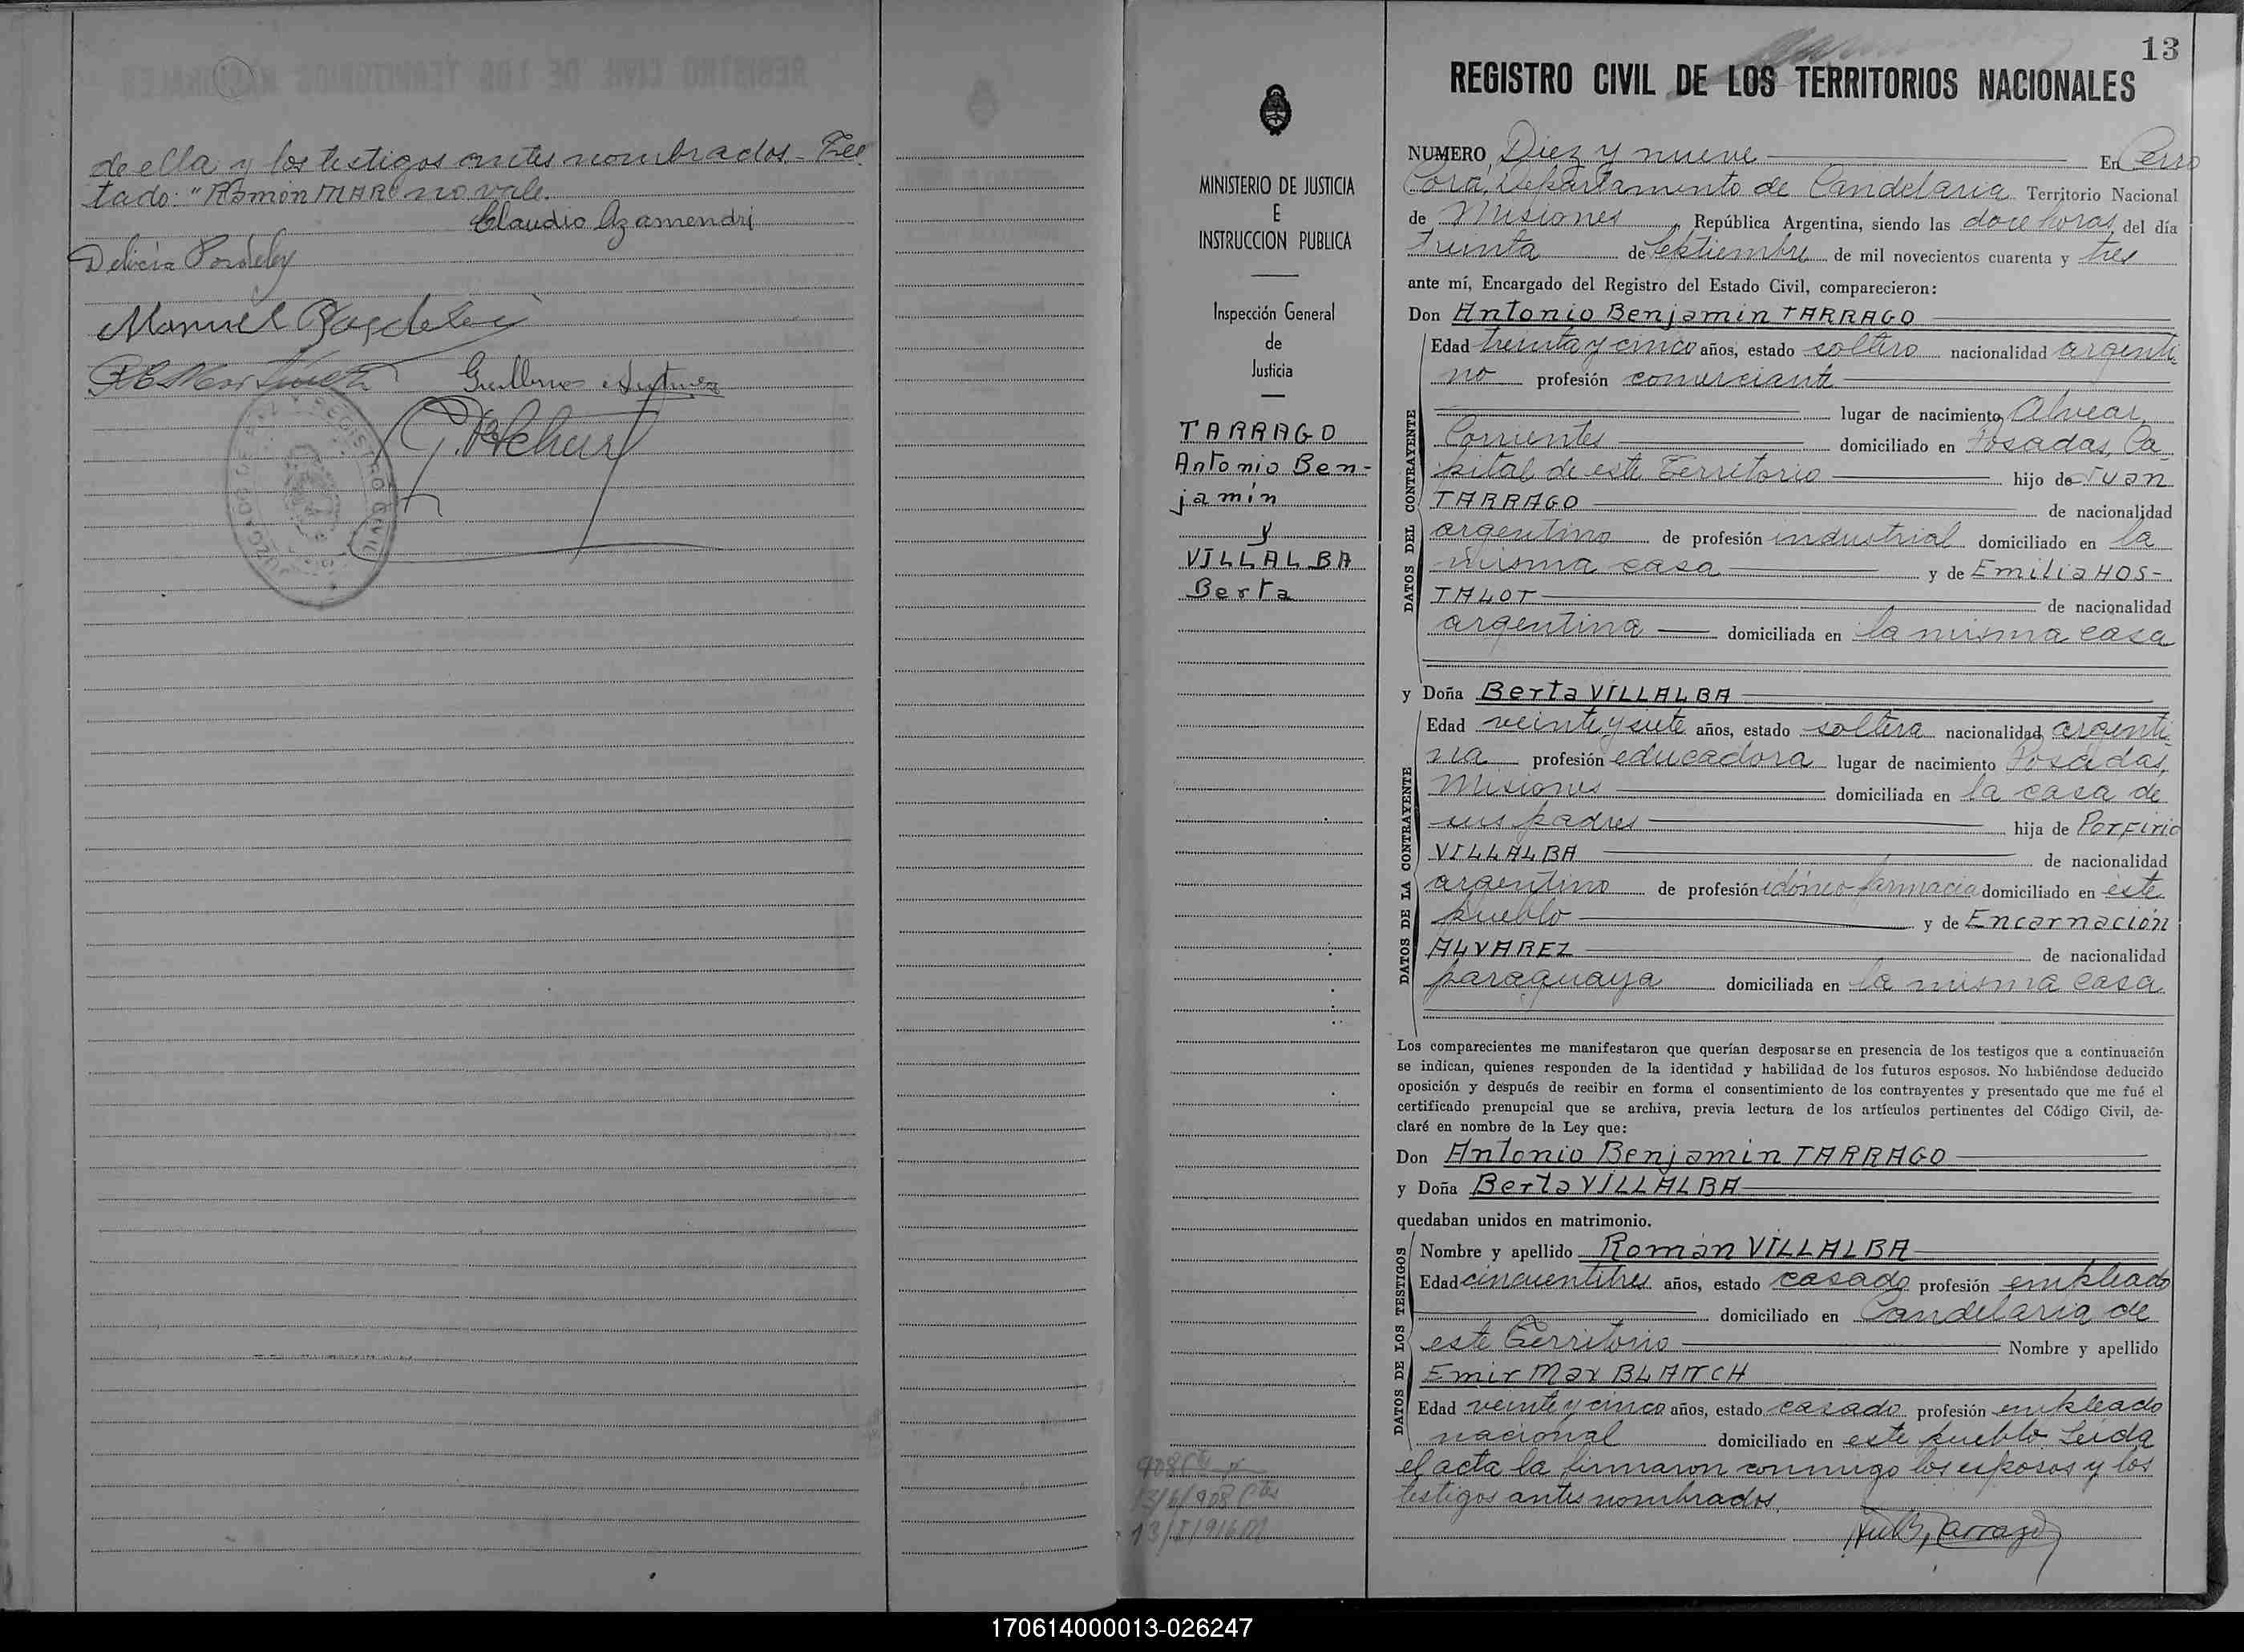 de ella y los testigos antes nombrados - Tes
tado: "Ramón MAR" no vale.
Claudio Azamendri
Delicia
Manuel
Guillermo
REGISTRO CIVIL
13
REGISTRO CIVIL DE LOS TERRITORIOS NACIONALES
MINISTERIO DE JUSTICIA
E
INSTRUCCION PUBLICA
Inspección General
de
Justicia
TARRAGO
Antonio Ben-
jamín
y
VILLALBA
Berta
908 Ctes
13/6/908 Ctes
NUMERO Diez y nueve En Cerro
Corá, Departamento de Candelaria Territorio Nacional
de Misiones, República Argentina, siendo las doce horas del día
treinta de Septiembre de mil novecientos cuarenta y tres
ante mí, Encargado del Registro del Estado Civil, comparecieron:
Don Antonio Benjamin TARRAGO
DATOS DEL CONTRAYENTE
Edad treinta y cinco años, estado soltero nacionalidad argenti
no profesión comerciante
lugar de nacimiento Alvear,
Corrientes domiciliado en Posadas, Ca
pital de este Territorio hijo de Juan
TARRAGO de nacionalidad
argentino de profesión industrial domiciliado en la
misma casa y de Emilia HOS-
TALOT de nacionalidad
argentina domiciliada en la misma casa
y Doña Berta VILLALBA
DATOS DE LA CONTRAYENTE
Edad veinte y siete años, estado soltera nacionalidad argenti
na profesión educadora lugar de nacimiento Posadas,
Misiones domiciliada en la casa de
sus padres hija de Porfirio
VILLALBA de nacionalidad
argentino de profesión idóneo farmacia domiciliado en este
pueblo y de Encarnación
ALVAREZ de nacionalidad
paraguaya domiciliada en la misma casa
Los comparecientes me manifestaron que querían desposarse en presencia de los testigos que a continuación
se indican, quienes responden de la identidad y habilidad de los futuros esposos. No habiéndose deducido
oposición y después de recibir en forma el consentimiento de los contrayentes y presentado que me fué el
certificado prenupcial que se archiva, previa lectura de los artículos pertinentes del Código Civil, de-
claré en nombre de la Ley que:
Don Antonio Benjamin TARRAGO
y Doña Berta VILLALBA
quedaban unidos en matrimonio.
DATOS DE LOS TESTIGOS
Nombre y apellido Román VILLALBA
Edad cincuentitres años, estado casado profesión empleado
domiciliado en Candelaria de
este Territorio Nombre y apellido
Emir Max BLANCH
Edad veinte y cinco años, estado casado profesión empleado
nacional domiciliado en este pueblo. Leida
el acta la firmaron conmigo los esposos y los
testigos antes nombrados.
Ant B, Tarrago
170614000013-026247